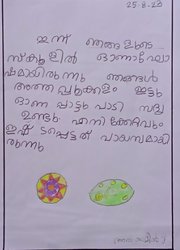 25.8.20
ഇന്ന് ഞങ്ങളുടെ
സ്കൂളിൽ ഓണാഘോ
ഷമായിരുന്നു ഞങ്ങൾ
അത്തപ്പൂക്കളം ഇട്ടു
ഓണ പ്പാട്ടു പാടി സദ്യ
ഉണ്ടു. എനിക്കേറ്റവും
ഇഷ്ടപ്പെട്ടത് പായസമായി
രുന്നു